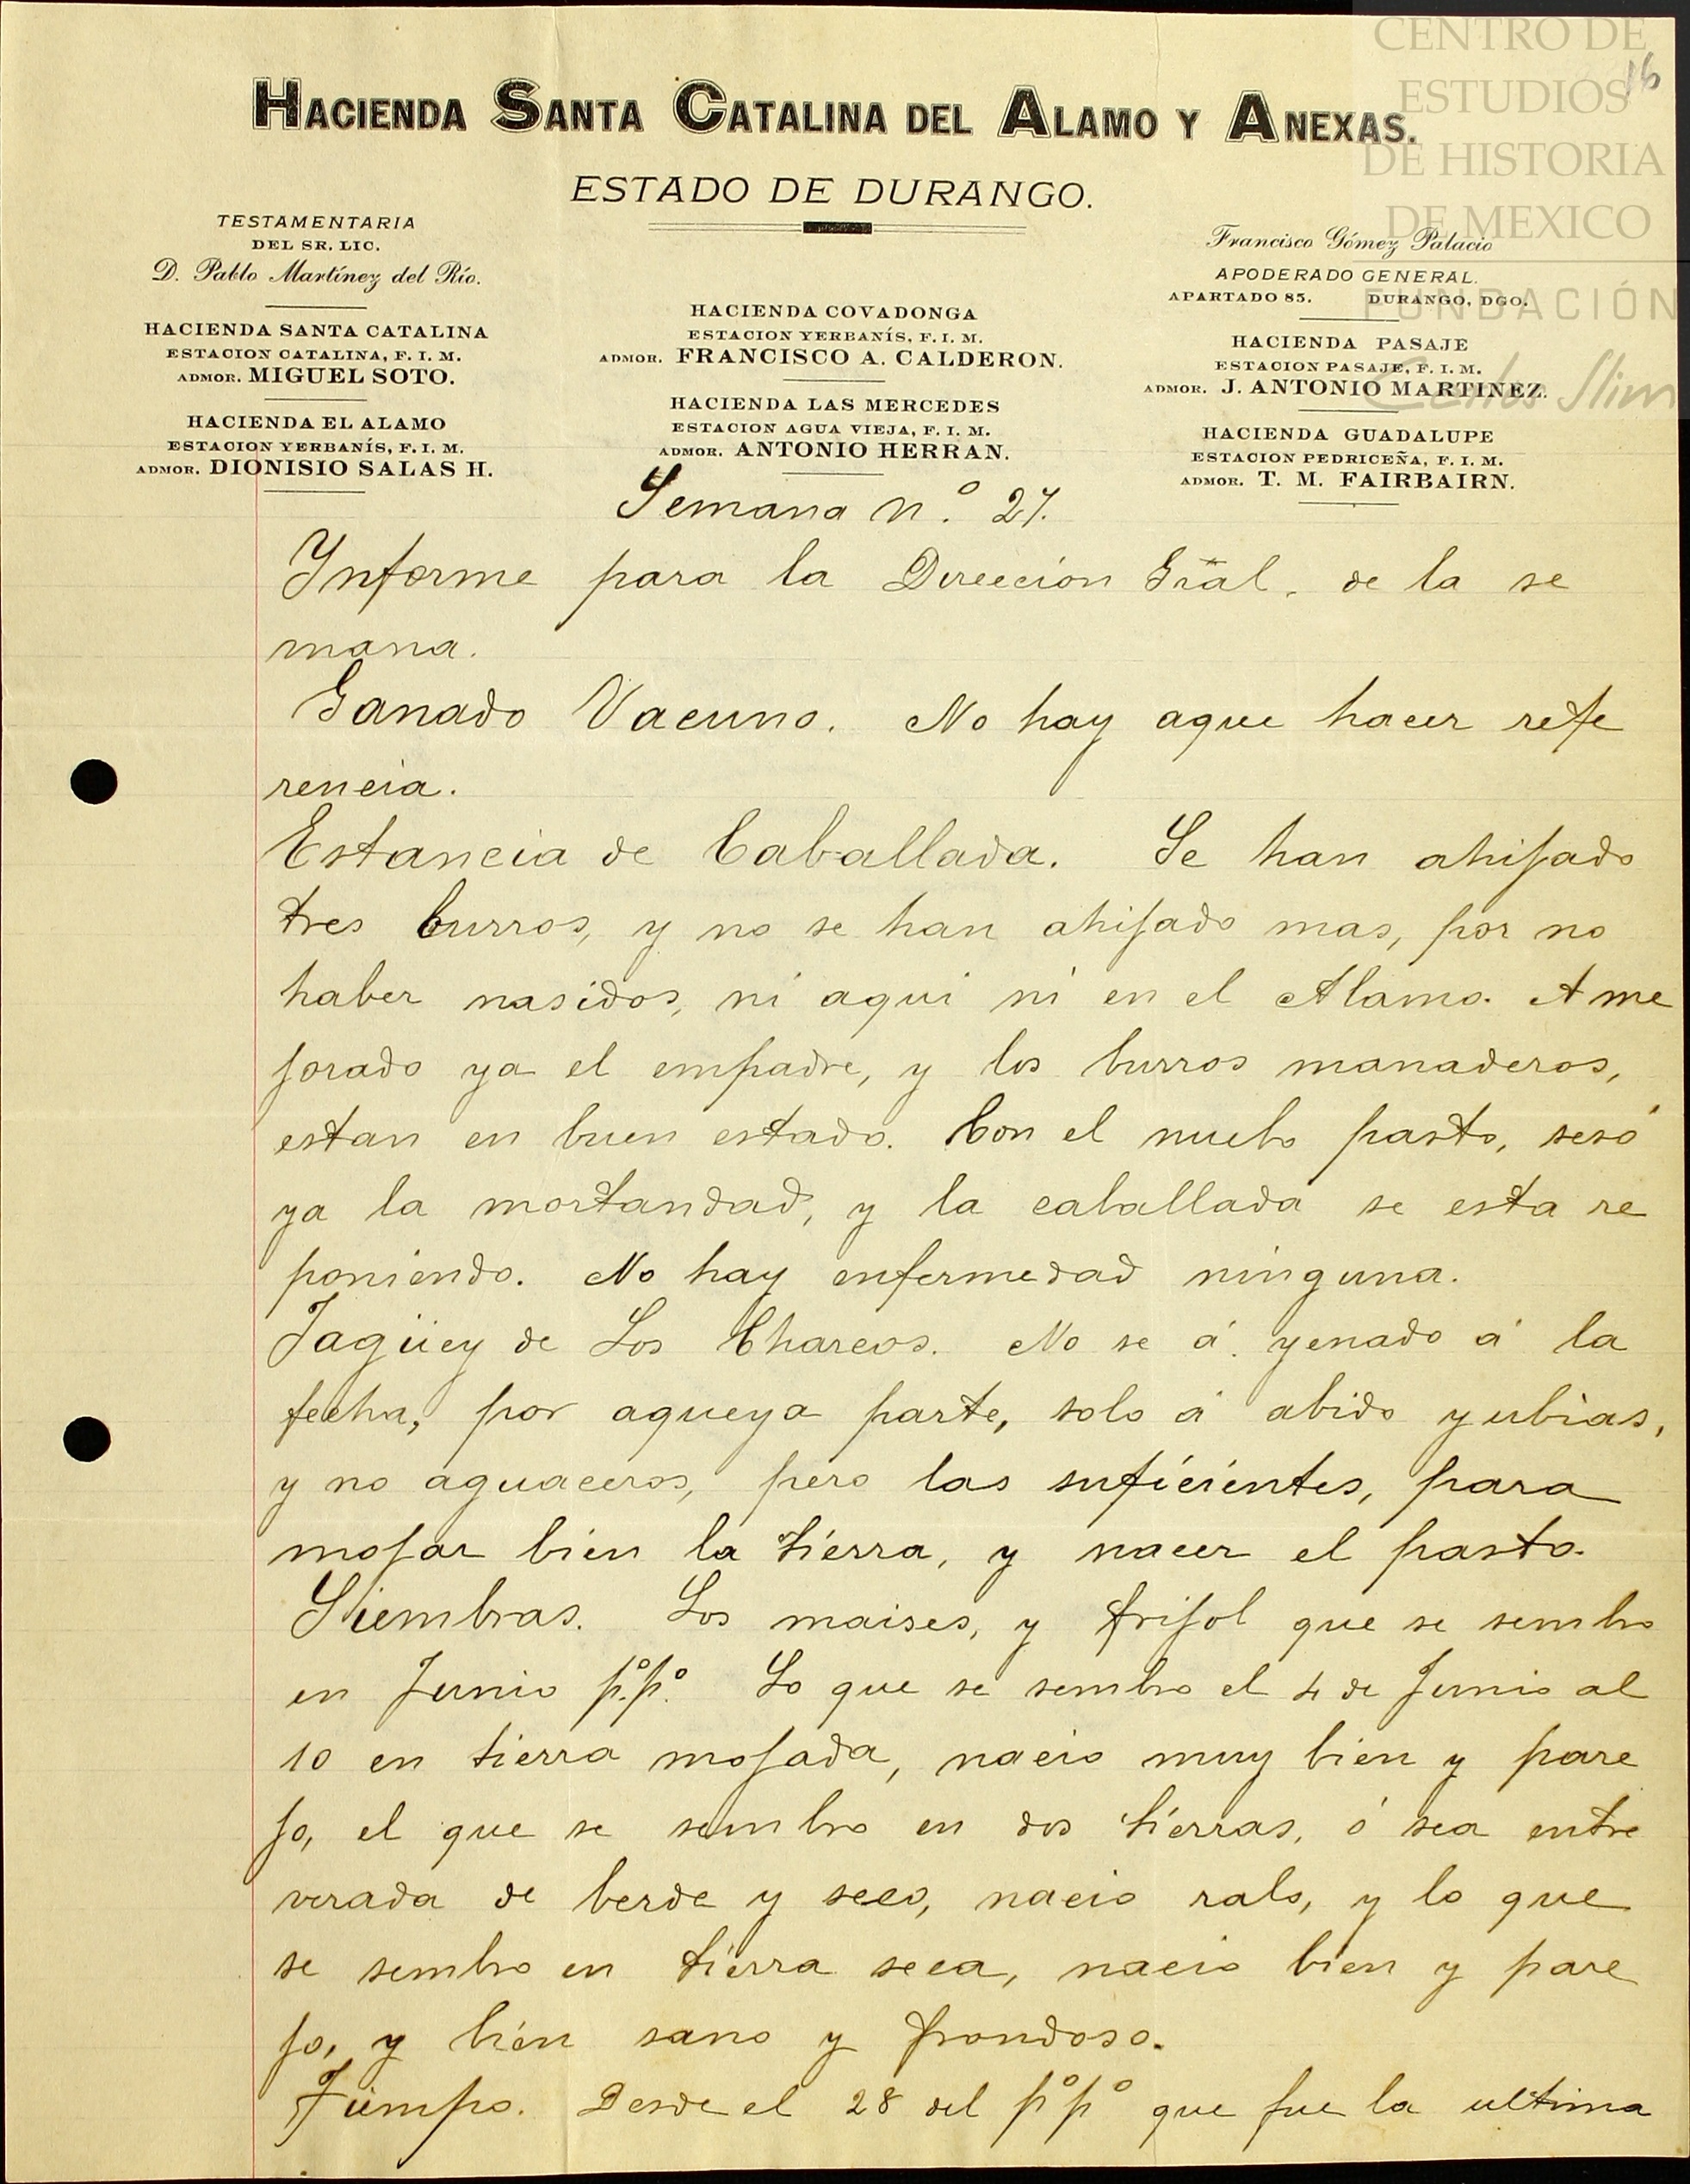 CENTRO DE
ESTUDIOS
DE HISTORIA
DE MEXICO
FUNDACIÓN
Carlos Slim
16
HACIENDA SANTA CATALINA DEL ALAMO Y ANEXAS.
ESTADO DE DURANGO.
TESTAMENTARIA
DEL SR. LIC.
D. Pablo Martínez del Río.
HACIENDA SANTA CATALINA
ESTACION CATALINA, F. I. M.
ADMOR. MIGUEL SOTO.
HACIENDA EL ALAMO
ESTACION YERBANÍS, F. I. M.
ADMOR. DIONISIO SALAS H.
HACIENDA COVADONGA
ESTACION YERBANÍS, F. I. M.
ADMOR. FRANCISCO A. CALDERON.
HACIENDA LAS MERCEDES
ESTACION AGUA VIEJA, F. I. M.
ADMOR. ANTONIO HERRAN.
Francisco Gómez Palacio
APODERADO GENERAL.
APARTADO 85. DURANGO, DGO.
HACIENDA PASAJE
ESTACION PASAJE, F. I. M.
ADMOR. J. ANTONIO MARTINEZ.
HACIENDA GUADALUPE
ESTACION PEDRICEÑA, F. I. M.
ADMOR. T. M. FAIRBAIRN.
Semana n.º 27.
Informe para la Direccion Gral. de la se
mana.
Ganado Vacuno. No hay aque hacer refe
rencia.
Estancia de Caballada. Se han ahijado
tres burros, y no se han ahijado mas, por no
haber nasidos, ni aqui ni en el Alamo. A me
jorado ya el empadre, y los burros manaderos,
estan en buen estado. Con el nuebo pasto, sesó
ya la mortandad, y la caballada se esta re
poniendo. No hay enfermedad ninguna.
Jagüey de Los Charcos. No se á yenado á la
fecha, por aqueya parte, solo á abido yubias,
y no aguaceros, pero las suficientes, para
mojar bien la tierra, y nacer el pasto.
Siembras. Los maises, y frijol que se sembro
en Junio p.º p.º Lo que se sembro el 4 de Junio al
10 en tierra mojada, nacio muy bien y pare
jo, el que se sembro en dos tierras, ó sea entre
verada de berde y seco, nacio ralo, y lo que
se sembro en tierra seca, nacio bien y pare
jo, y bien sano y frondoso.
Tiempo. Desde el 28 del pº pº que fue la ultima